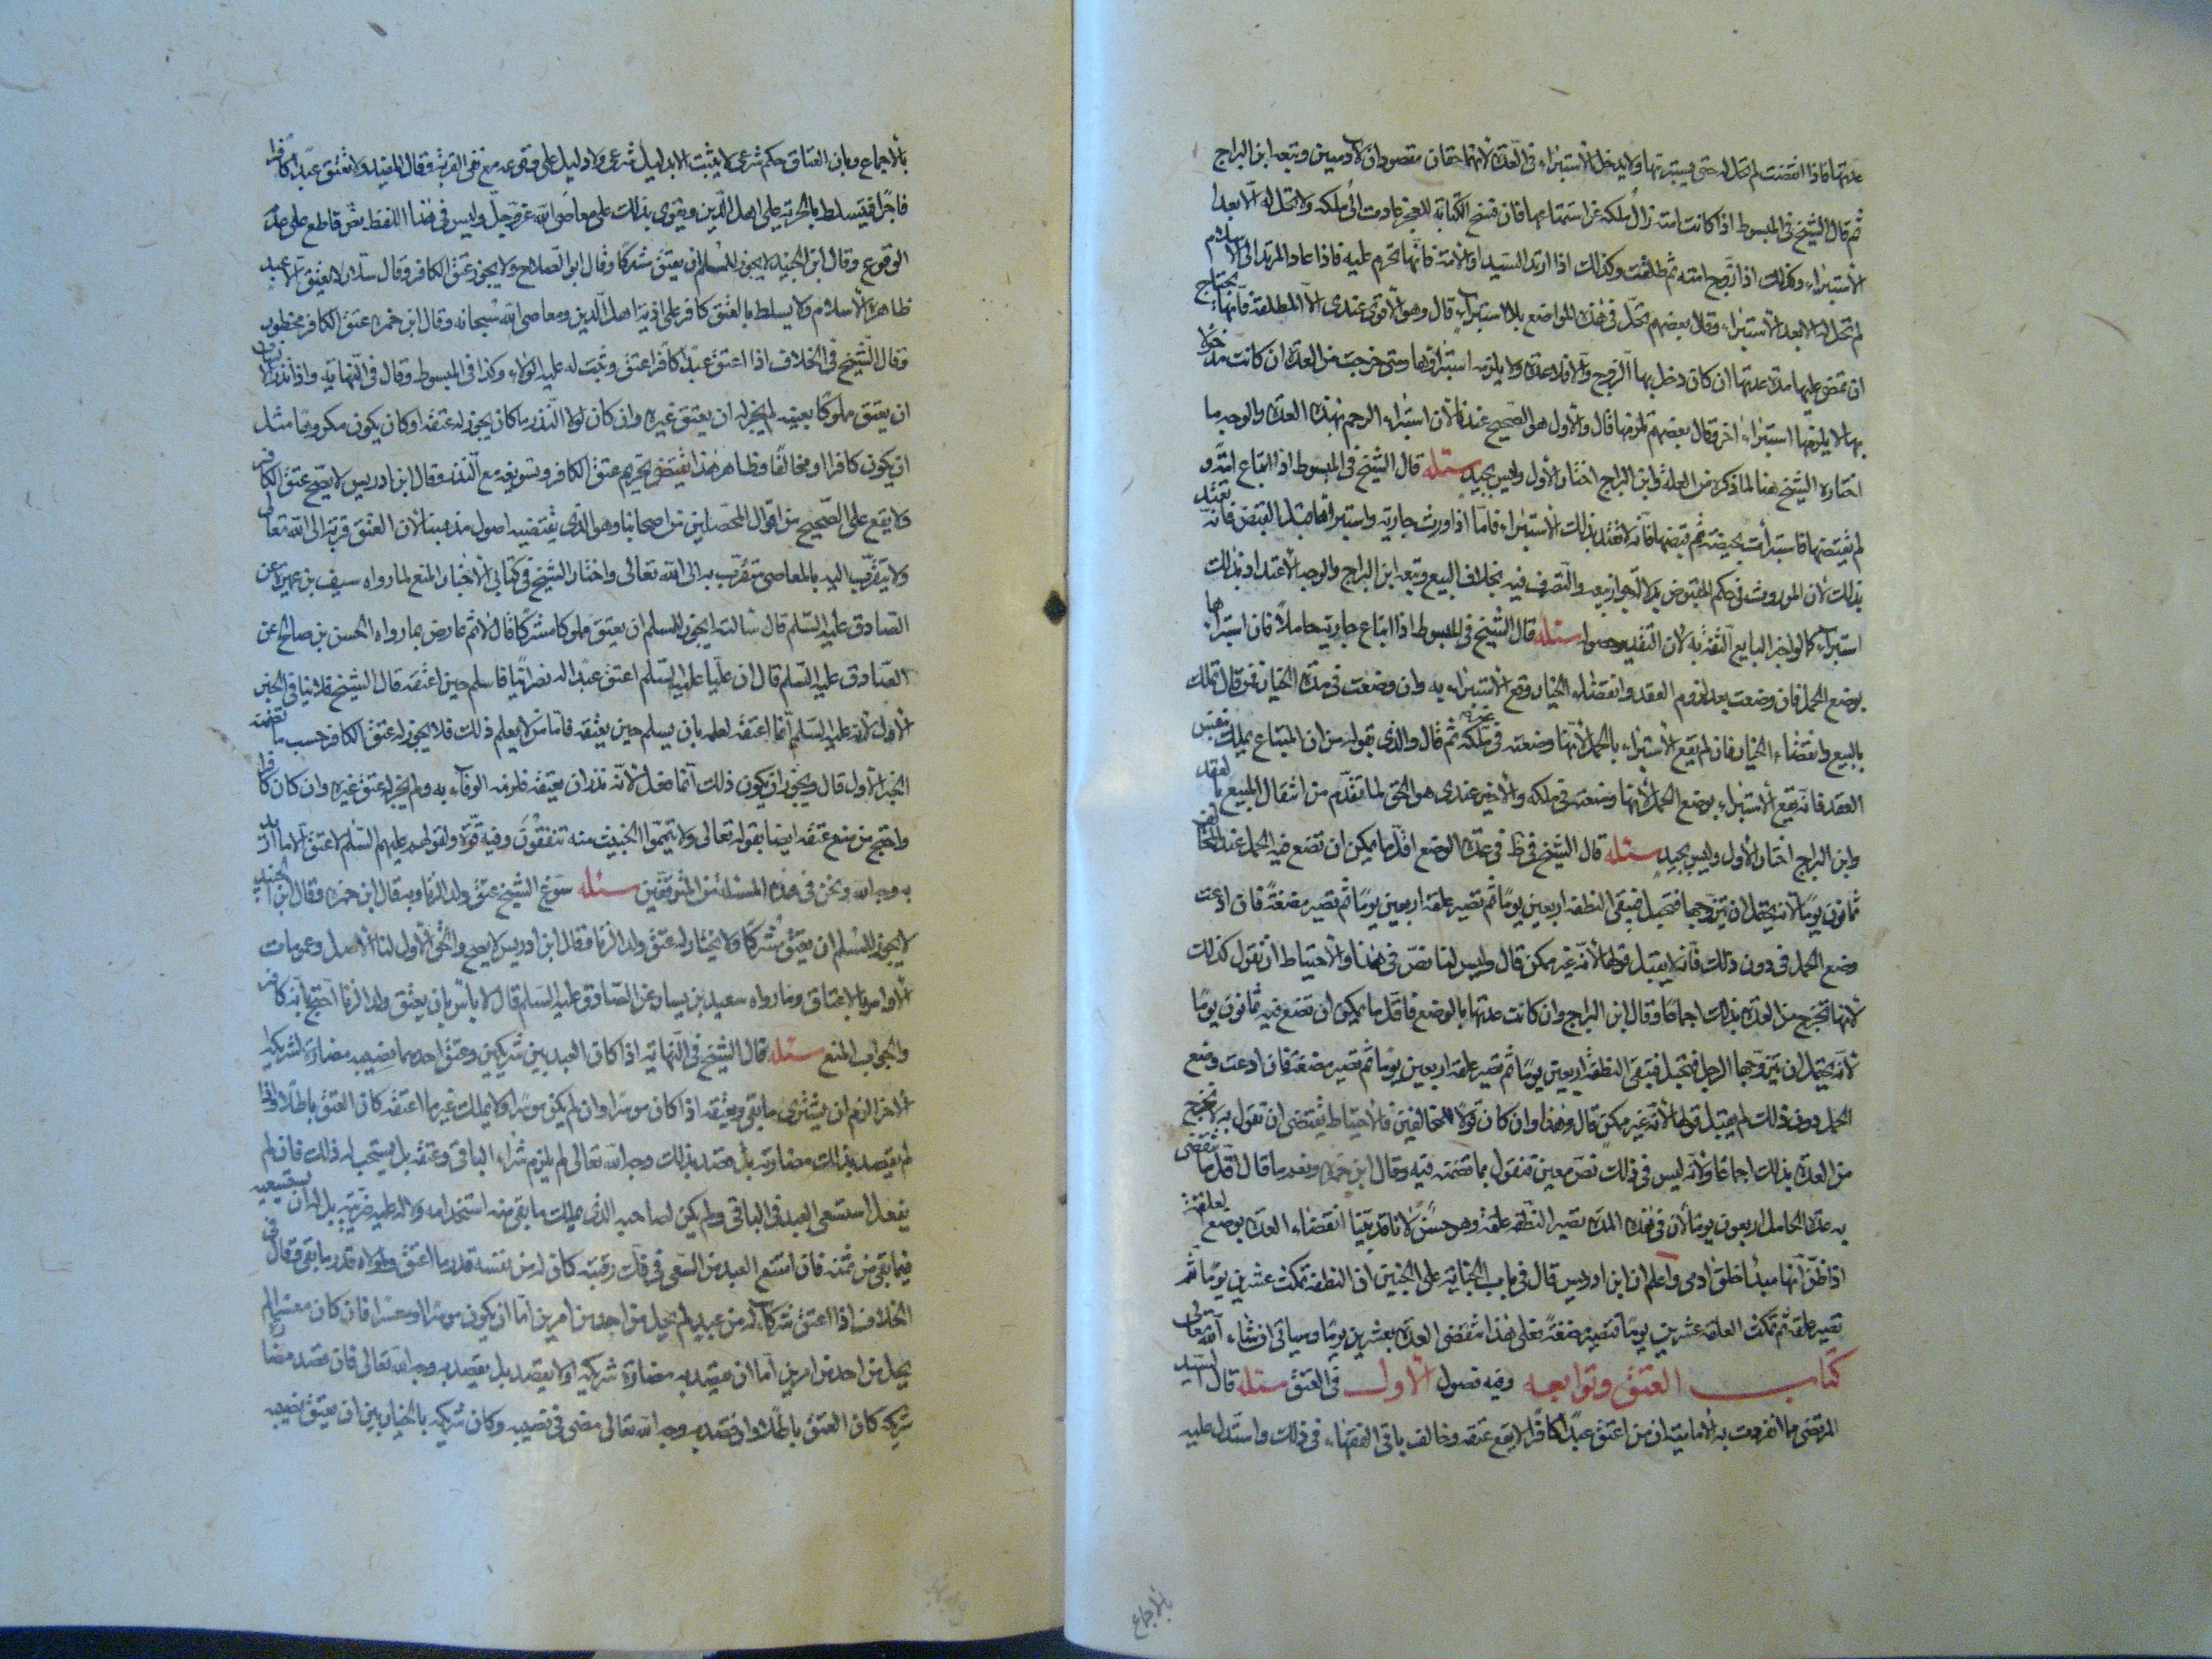 عدتها فاذا انقضت لم تحل له حتى يستبرئها ولا يدخل الاستبراء في العدة لانهما حقان مقصودان لآدميين وتبعه ابن البراج
ثم قال الشيخ في المبسوط اذا كاتب امته زال ملكه عن استمتاعها فان فسخ الكتابة للعجز عادت الى ملكه ولا تحل له الا بعد
الاستبراء وكذلك اذا زوج امته ثم طلقت وكذلك اذا ارتد السيد او الامة فانها تحرم عليه فاذا عاد المرتد الى الاسلام
لم تحل له الا بعد الاستبراء وقال بعضهم تحل في هذه المواضع بلا استبراء قال وهو الاقوى عندى الا المطلقة فانها يحتاج
ان تمضى عليها مدة عدتها ان كان دخل بها الزوج والا فلا عدة ولا يلزمه استبراؤها ومتى خرجت من العدة ان كانت مدخولا
بها لا يلزمها استبراء اخر وقال بعضهم تلزمها قال والاول هو الصحيح عندنا لان استبراء الرحم بهذه العدة والوجه ما
اختاره الشيخ هنا لما ذكره من العلة وابن البراج اختار الاول وليس بجيد مسئله قال الشيخ في المبسوط اذا ابتاع امة و
لم يقبضها فاستبرأت بحيضة ثم قبضها فانه لا يعتد بذلك الاستبراء فاما اذا ورث جارية واستبرأها قبل القبض فانه يعتد
بذلك لان الموروث في حكم المقبوض بدلالة جواز بيعه والتصرف فيه بخلاف البيع وتبعه ابن البراج والوجه الاعتداد بذلك
استبراء كما لو اخبر البايع الثقة به لان التقدير حصوله مسئله قال الشيخ في المبسوط اذا ابتاع جارية حاملا فان استبراءها
بوضع الحمل فان وضعت بعد لزوم العقد وانقضاء الخيار وقع الاستبراء به وان وضعت في مدة الخيار فمن قال تملك
بالبيع وانقضاء الخيار فان لم يقع الاستبراء بالحمل لانها وضعته في ملكه غيره ثم قال والذى يقوله من ان المبتاع يملك بنفس
العقد فانه يقع الاستبراء بوضع الحمل لانها وضعته في ملكه والاخير عندى هو الحق لما تقدم من انتقال المبيع بالعقد
وابن البراج اختار الاول وليس بجيد مسئله قال الشيخ في ظ في عدة الوضع اقل ما يمكن ان تضع فيه الحمل عند المخالفين
ثمانون يوما لانه يحتمل ان يتزوجها فتحبل فتبقى النطفة اربعين يوما ثم تصير علقة اربعين يوما ثم تصير مضغة فان ادعت
وضع الحمل في دون ذلك فانه لا يقبل قولها لانه غير ممكن قال وليس لنا نص في هذا والاحتياط ان نقول كذلك
لانها تخرج من العدة بذلك اجماعا وقال ابن البراج وان كانت عدتها بالوضع فاقل ما يمكن ان تضع فيه ثمانون يوما
لانه يحتمل ان يتزوجها الرجل فتحبل فتبقى النطفة اربعين يوما ثم تصير علقة اربعين يوما ثم تصير مضغة فان ادعت وضع
الحمل دون ذلك لم يقبل قولها لانه غير ممكن قال وهذا وان كان قولا للمخالفين فالاحتياط يقتضى ان نقول به لانه تخرج
من العدة بذلك اجماعا ولانه ليس في ذلك نص معين فنقول بما تضمنه فيه وقال ابن حمزه ونعم ما قال اقل ما تنقضى
به عدة الحامل اربعون يوما لان في هذه المدة تصير النطفة علقة وهو حسن لانا قد بينا انقضاء العدة بوضع العلقة
اذا ظن انها مبدأ خلق ادمى واعلم ان ابن ادريس قال في باب الجناية على الجنين ان النطفة تمكث عشرين يوما ثم
تصير علقة ثم تمكث العلقة عشرين يوما فتصير مضغة فعلى هذا تنقضى العدة بعشرين يوما وسياتى ان شاء الله تعالى
كتاب العتق وتوابعه وفيه فصول الاول في العتق مسئله قال السيد
المرتضى مما انفردت به الامامية ان من اعتق عبدا كافرا لا يقع عتقه وخالف باقى الفقهاء في ذلك واستدل عليه
بالاجماع
بالاجماع وبان العتاق حكم شرعى لا يثبت الا بدليل شرعى ولا دليل على وقوعه مع نفى القربة وقال المفيد ولا تعتق عبدا كافرا
فاجرا فيتسلط بالحرية على اهل الدين ويقوى بذلك على معاصى الله عز وجل وليس في هذا اللفظ نص قاطع على عدم
الوقوع وقال ابن الجنيد لا يجوز للمسلم ان يعتق مشركا وقال ابو الصلاح ولا يجوز عتق الكافر وقال سلار لا يعتق الا عبد
ظاهره الاسلام ولا يسلط بالعتق كافر على اذية اهل الدين ومعاصى الله سبحانه وقال ابن حمزه عتق الكافر محظور
وقال الشيخ في الخلاف اذا اعتق عبدا كافرا عتق وثبت له عليه الولاء وكذا في المبسوط وقال في النهاية واذا نذر الانسان
ان يعتق مملوكا بعينه لم يجز له ان يعتق غيره وان كان لولا النذر ما كان يجوز له عتقه او كان يكون مكروها مثل
ان يكون كافرا او مخالفا وظاهر هذا يقتضى تحريم عتق الكافر وتسويغه مع النذر وقال ابن ادريس لا يصح عتق الكافر
ولا يقع على الصحيح من اقوال المحصلين من اصحابنا وهو الذى يقتضيه اصول مذهبنا لان العتق قربة الى الله تعالى
ولا يتقرب اليه بالمعاصى تقرب به الى الله تعالى واختار الشيخ في كتابى الاخبار المنع لما رواه سيف بن عميرة عن
الصادق عليه السلم قال سالته ايجوز للمسلم ان يعتق مملوكا مشركا قال لا ثم عارض بما رواه الحسن بن صالح عن
الصادق عليه السلم قال ان عليا عليه السلم اعتق عبدا له نصرانيا فاسلم حين اعتقه قال الشيخ فلا ينافى الخبر
الاول لانه عليه السلم انما اعتقه لعلمه بان يسلم حين يعتقه فاما من لا يعلم ذلك فلا يجوز له عتق الكافر حسب ما تضمنه
الخبر الاول قال ويجوز ان يكون ذلك انما فعل لانه نذر ان يعتقه فلزمه الوفاء به ولم يجز له عتق غيره وان كان كافرا
واحتج من منع عتقه ايضا بقوله تعالى ولا تيمموا الخبيث منه تنفقون وفيه قوة ولقولهم عليهم السلم لا عتق الا ما اريد
به وجه الله ونحن في هذه المسئله من المتوقفين مسئله سوغ الشيخ عتق ولد الزنا وبه قال ابن حمزه وقال ابن الجنيد
لا يجوز للمسلم ان يعتق مشركا ولا يختار له عتق ولد الزنا وقال ابن ادريس لا يصح والحق الاول لنا الاصل وعمومات
الاوامر بالاعتاق وما رواه سعيد بن يسار عن الصادق عليه السلم قال لا باس بان يعتق ولد الزنا احتج بانه كافر
والجواب المنع مسئله قال الشيخ في النهاية اذا كان العبد بين شريكين وعتق احدهما نصيبه مضارة لشريكه
الاخر الزم ان يشترى ما بقى ويعتقه اذا كان موسرا وان لم يكن موسرا ولا يملك غير ما اعتقه كان العتق باطلا واذا
لم يقصد بذلك مضارته بل قصد بذلك وجه الله تعالى لم يلزم شراء الباقى وعتقه بل يستحب له ذلك فان لم
يفعل استسعى العبد في الباقى ولم يكن لصاحبه الذى يملك ما بقى منه استخدامه ولا له عليه ضريبة بل له ان يستسعيه
فيما بقى من ثمنه فان امتنع العبد من السعى في فك رقبته كان له من نفسه قدر ما اعتق ولمولاه قدر ما بقى وقال في
الخلاف اذا اعتق شركا له من عبد لم يخل من احد من امرين اما ان يكون موسرا او معسرا فان كان معسرا لم
يخل من احد من امرين اما ان يقصد به مضارة شريكه او لا يقصد بل يقصد به وجه الله تعالى فان قصد مضارة
شريكه كان العتق باطلا وان قصد به وجه الله تعالى مضى في نصيبه وكان شريكه بالخيار بين ان يعتق نصيبه